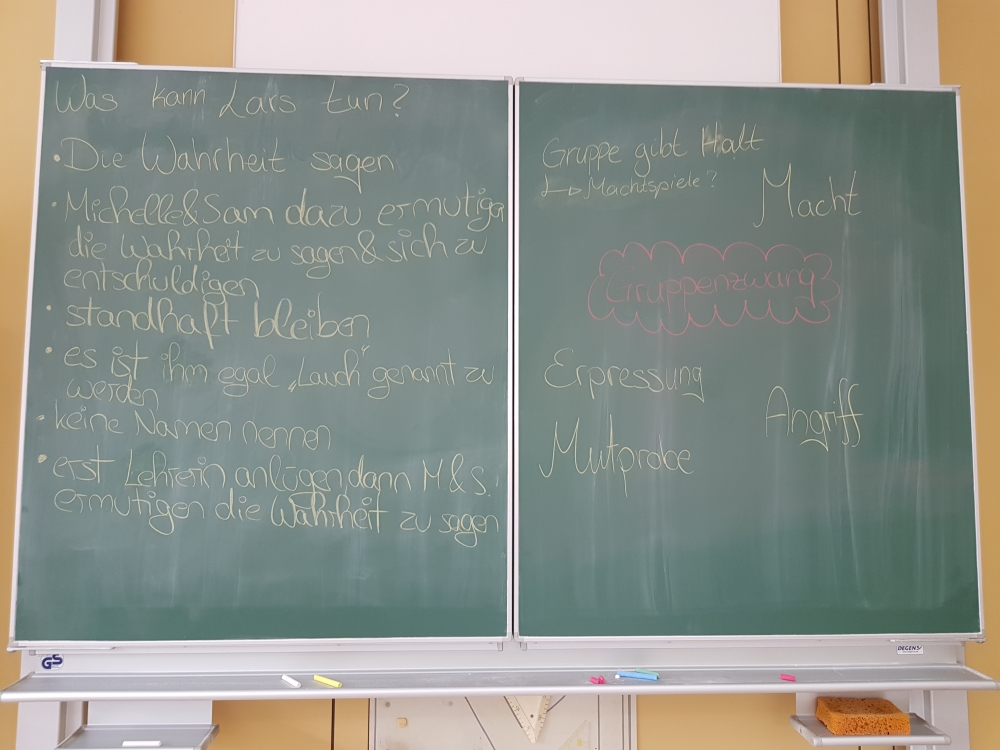 Was kann Lars tun?
• Die Wahrheit sagen
• Michelle&Sam dazu ermutigen
die Wahrheit zu sagen & sich zu
entschuldigen
• standhaft bleiben
• es ist ihm egal „Lauch“ genannt zu
werden
• keine Namen nennen
• erst Lehrerin anlügen dann M&S.
ermutigen die Wahrheit zu sagen
Gruppe gibt Halt
↳ Machtspiele?
Macht
Gruppenzwang
Erpressung
Angriff
Mutprobe
GS
DEGENS